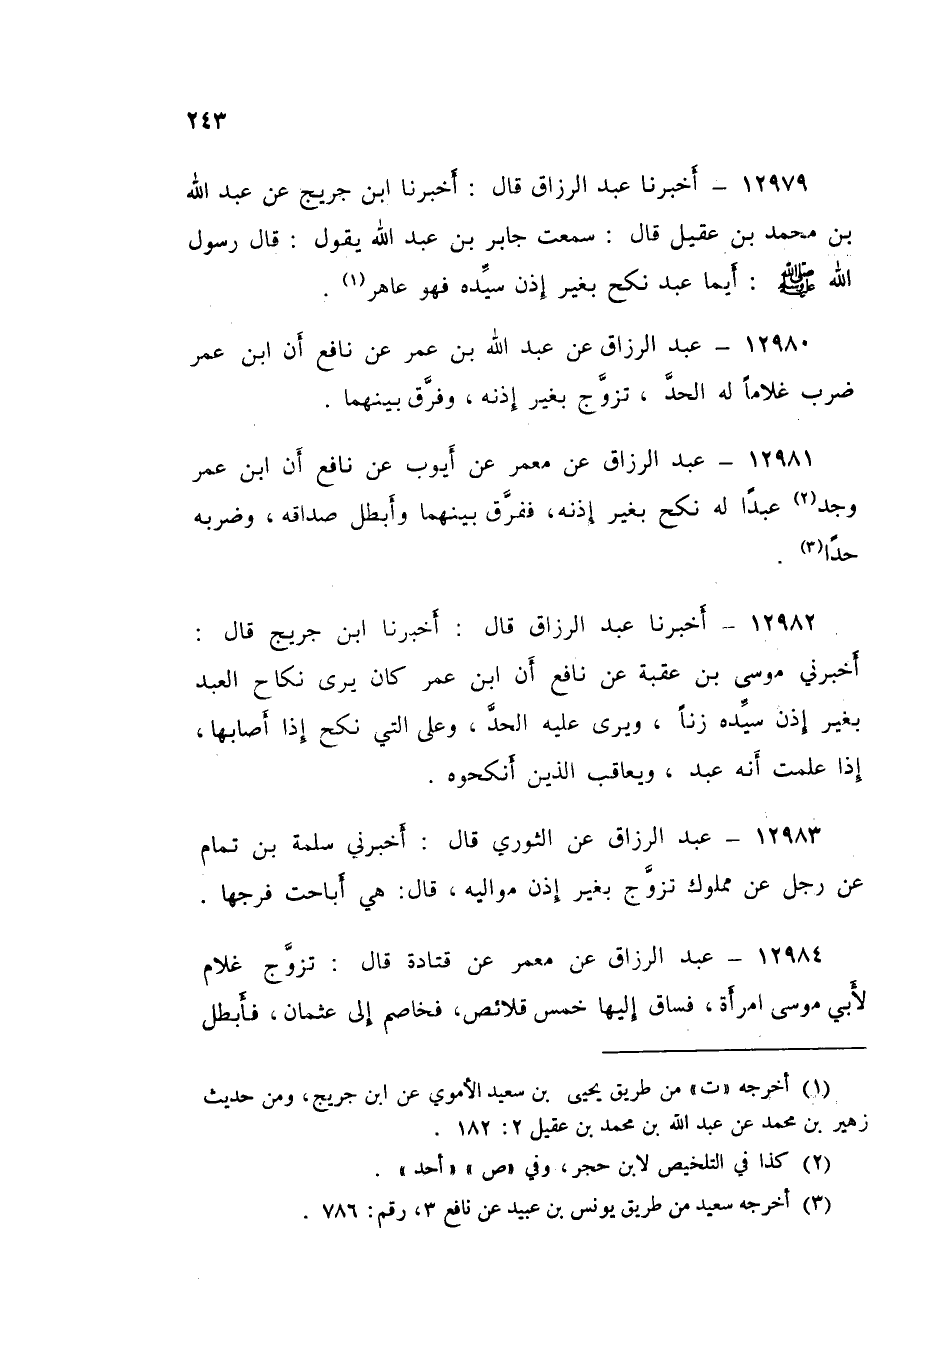 ٢٤٣
١٢٩٧٩ – أَخبرنا عبد الرزاق قال : أَخبرنا ابن جريج عن عبد الله
بن محمد بن عقيل قال : سمعت جابر بن عبد الله يقول : قال رسول
الله ﷺ : أَيما عبد نكح بغير إذن سيِّده فهو عاهر(١) .
١٢٩٨٠ – عبد الرزاق عن عبد الله بن عمر عن نافع أَن ابن عمر
ضرب غلاماً له الحدَّ ، تزوَّج بغير إذنه ، وفرَّق بينهما .
١٢٩٨١ – عبد الرزاق عن معمر عن أَيوب عن نافع أَن ابن عمر
وجد(٢) عبدًا له نكح بغير إذنه، ففرَّق بينهما وأَبطل صداقه ، وضربه
حدًا(٣) .
١٢٩٨٢ – أَخبرنا عبد الرزاق قال : أَخبرنا ابن جريج قال :
أَخبرني موسى بن عقبة عن نافع أَن ابن عمر كان يرى نكاح العبد
بغير إذن سيِّده زناً ، ويرى عليه الحدَّ ، وعلى التي نكح إذا أَصابها ،
إذا علمت أَنه عبد ، ويعاقب الذين أَنكحوه .
١٢٩٨٣ – عبد الرزاق عن الثوري قال : أَخبرني سلمة بن تمام
عن رجل عن مملوك تزوَّج بغير إذن مواليه ، قال: هي أَباحت فرجها .
١٢٩٨٤ – عبد الرزاق عن معمر عن قتادة قال : تزوَّج غلام
لأَبي موسى امرأَة ، فساق إليها خمس قلائص، فخاصم إلى عثمان ، فأَبطل
(١) أخرجه «ت» من طريق يحيى بن سعيد الأموي عن ابن جريج، ومن حديث
زهير بن محمد عن عبد الله بن محمد بن عقيل ٢: ١٨٢ .
(٢) كذا في التلخيص لابن حجر ، وفي «ص» «أحد» .
(٣) أخرجه سعيد من طريق يونس بن عبيد عن نافع ٣، رقم: ٧٨٦ .